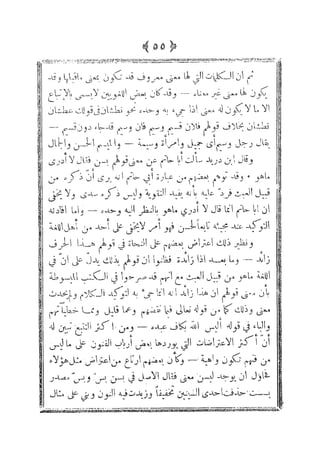 ﴿ ٥٥ ﴾
ثم ان الكلمات التي لها معنى معروف قد تكون بمعنى ماقبلها وقد
يكون لها معنى غير معناه — وقد كان بعض اللغويين لايسمى بالاتباع
الا ما لا يكون له معنى اذا جيء به وحده نحو نطشان في قولك عطشان
نطشان بخلاف قولهم فلان قسيم وسيم فان وسيم قد جاء دون قسيم —
يقال رجل وسيم أى جميل وامرأة وسيمة — والميسم الحسن والجمال
وقال ابن دريد سألت أبا حاتم عن معنى قولهم بسن فقال لا أدرى
ماهو * وقد توهم بعضهم من عبارة أبي حاتم انه يرى أنّ ذكره من
قبيل العبث فردّ عليه بأنه يفيد التقوية وليس ذكره سدى ولا يخفى
ان ابا حاتم انما قال لا أدري ماهو بالنظر اليه وحده — واما افادته
التوكيد عند مجيئه تابعا لحسن فهو أمر لا يخفى على أحد من أهل اللغة
ونظير ذلك اعتراض بعضهم على النحاة في قولهم هذا الحرف
زائد — وما بعد اذا زائدة فظنوا ان قولهم بذلك يدلّ على انّ في
اللغة ماهو من قبيل العبث مع انهم قد صرحوا في الكتب المبسوطة
بأن معنى قولهم ان هذا زائد انه انما جيء به لتوكيد الكلام ولم يحدث
معنى وذلك كما من قوله تعالى فبما نقضهم وعما قليل ومما خطيآتهم
والباء في قوله أليس الله بكاف عبده — ومن اكثر التتبع تبين له
أنّ أكثر الاعتراضات التي يوردها بعض أرباب الفنون على ما ليس
من فنهم تكون واهية — وكأن بعضهم ارتاع من اعتراض مثل هؤلاء
فحاول ان يوجد لبسن معنى فقال الاصل في بسن بسّ وبسّ مصدر
بسست حذفت احدى السينين تخفيفاً وزيدت فيه النون وبني على مثال